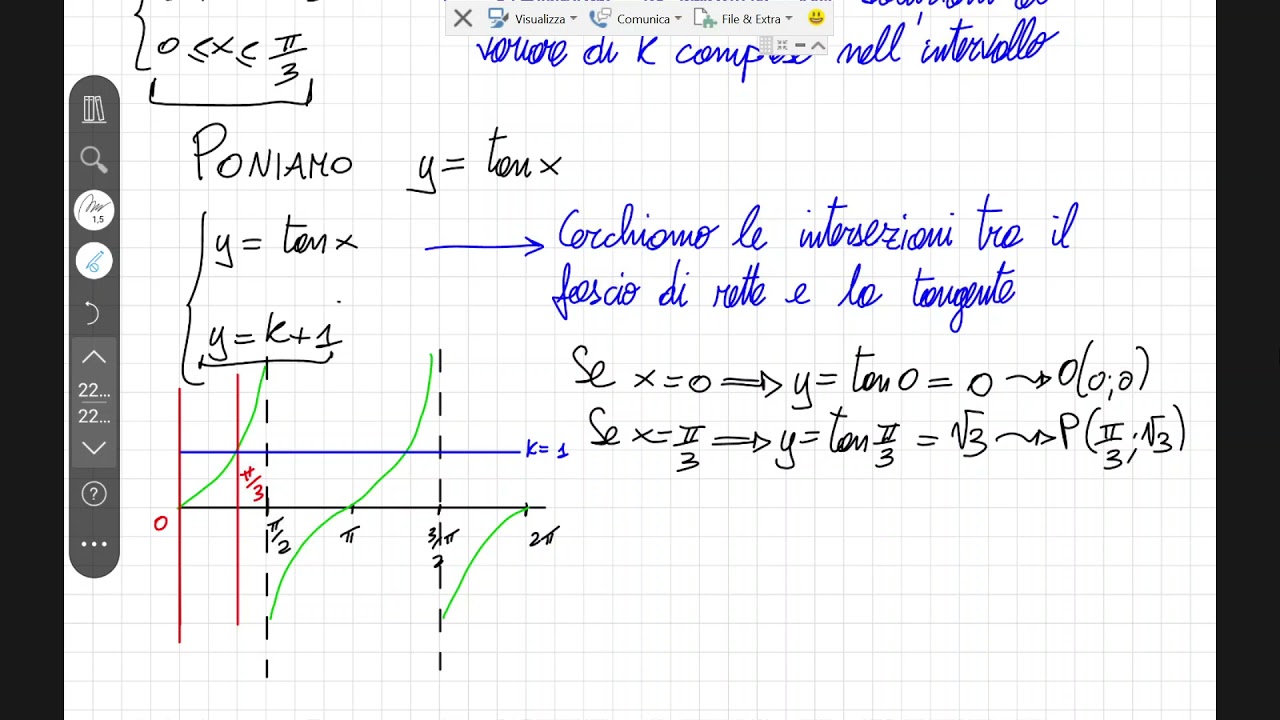 Visualizza Comunica File & Extra
0 ≤ x ≤ π/3
valore di K comprese nell'intervallo
PONIAMO y = tan x
y = tan x → Cerchiamo le intersezioni tra il
fascio di rette e la tangente
y = K+1
Se x=0 ⟹ y = tan 0 = 0 ⤳ O(0;0)
Se x=π/3 ⟹ y = tan π/3 = √3 ⤳ P(π/3; √3)
K=1
π/3
0
π/2
π
3/2 π
2π
1,5
22...
22...